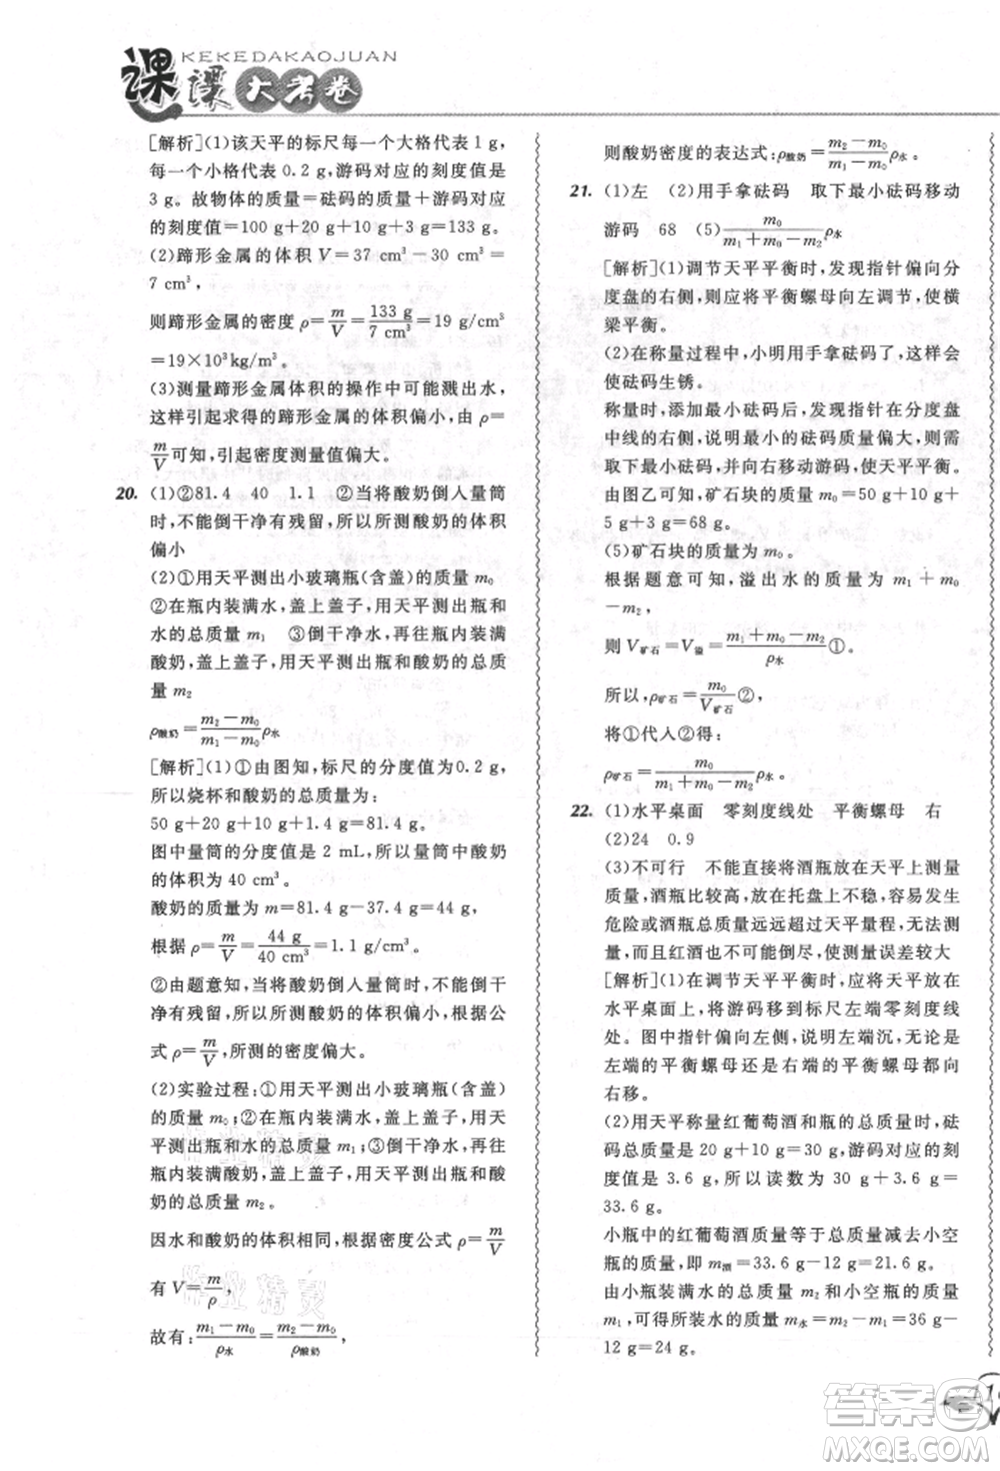 KEKEDAKAOJUAN
课课大考卷
[解析](1)该天平的标尺每一个大格代表1 g,
每一个小格代表0.2 g,游码对应的刻度值是
3 g。故物体的质量=砝码的质量+游码对应
的刻度值=100 g+20 g+10 g+3 g=133 g。
(2)蹄形金属的体积 V=37 cm³-30 cm³=
7 cm³,
则蹄形金属的密度 ρ=m/V=133 g/7 cm³=19 g/cm³
=19×10³kg/m³。
(3)测量蹄形金属体积的操作中可能溅出水,
这样引起求得的蹄形金属的体积偏小,由 ρ=
m/V可知,引起密度测量值偏大。
20. (1)①81.4 40 1.1 ②当将酸奶倒人量筒
时,不能倒干净有残留,所以所测酸奶的体积
偏小
(2)①用天平测出小玻璃瓶(含盖)的质量 m₀
②在瓶内装满水,盖上盖子,用天平测出瓶和
水的总质量 m₁ ③倒干净水,再往瓶内装满
酸奶,盖上盖子,用天平测出瓶和酸奶的总质
量 m₂
ρ酸奶=(m₂-m₀)/(m₁-m₀)ρ水
[解析](1)①由图知,标尺的分度值为0.2 g,
所以烧杯和酸奶的总质量为:
50 g+20 g+10 g+1.4 g=81.4 g。
图中量筒的分度值是 2 mL,此时量筒中酸奶
的体积为 40 cm³。
酸奶的质量为 m=81.4 g-37.4 g=44 g,
根据 ρ=m/V=44 g/40 cm³=1.1 g/cm³。
②由题意知,当将酸奶倒人量筒时,不能倒干
净有残留,所以所测酸奶的体积偏小。根据公
式 ρ=m/V,所测的密度偏大。
(2)实验过程:①用天平测出小玻璃瓶(含盖)
的质量 m₀;②在瓶内装满水,盖上盖子,用天
平测出瓶和水的总质量 m₁;③倒干净水,再往
瓶内装满酸奶,盖上盖子,用天平测出瓶和酸
奶的总质量 m₂
因水和酸奶的体积相同,根据密度公式 ρ=m/V
有 V=m/ρ,
故有:(m₁-m₀)/ρ水=(m₂-m₀)/ρ酸奶,
则酸奶密度的表达式:ρ酸奶=(m₂-m₀)/(m₁-m₀)ρ水。
21. (1)左 (2)用手拿砝码 取下最小砝码移动
游码 68 (5)m₀/(m₁+m₀-m₂)ρ水
[解析](1)调节天平平衡时,发现指针偏向分
度盘的右侧,则应将平衡螺母向左调节,使横
梁平衡。
(2)在称量过程中,小明用手拿砝码了,这样会
使砝码生锈。
称量时,添加最小砝码后,发现指针在分度盘
中线的右侧,说明最小的砝码质量偏大,则需
取下最小砝码,向右移动游码,使天平平衡。
由图乙可知,矿石块的质量 m₀=50 g+10 g+
5 g+3 g=68 g。
(5)矿石块的质量为 m₀。
根据题意可知,溢出水的质量为 m₁+m₀
-m₂,
则 V矿石=V溢=(m₁+m₀-m₂)/ρ水①。
所以,ρ矿石=m₀/V矿石②,
将①代人②得:
ρ矿石=m₀/(m₁+m₀-m₂)ρ水。
22. (1)水平桌面 零刻度线处 平衡螺母 右
(2)24 0.9
(3)不可行 不能直接将酒瓶放在天平上测量
质量,酒瓶比较高,放在托盘上不稳,容易发生
危险或酒瓶总质量远远超过天平量程,无法测
量而且红酒不可能倒尽,使测量误差较大
[解析](1)在调节天平平衡时,应将天平放在
水平桌面上,将游码移到标尺左端零刻度线
处。图中指针偏左,说明左端沉,无论是
左端的平衡螺母还是右端的平衡螺母都向
右移。
(2)用天平称量红葡萄酒和小瓶的总质量时,砝
码总质量为 20 g+10 g=30 g,游码对应的刻
度值为 3.6 g,所以读数为 30 g+3.6 g=
33.6 g。
小瓶中的红葡萄酒质量等于总质量减去小空
瓶的质量,即 m酒=33.6 g-12 g=21.6 g。
由小瓶装满水的总质量和小空瓶的质量
m₁,可得所装水的质量 m水=m₂-m₁=36 g
-12 g=24 g。
作业精灵
答案圈
MXQE.COM